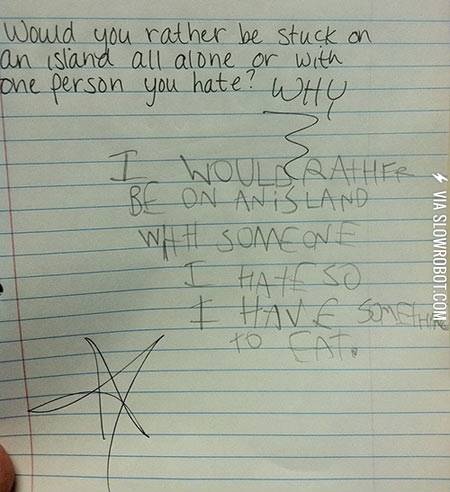 Would you rather be stuck on
an island all alone or with
one person you hate? WHY
I WOULD RATHER
BE ON AN ISLAND
WITH SOMEONE
I HATE SO
I HAVE SOMETHING
TO EAT.
VIA SLOWROBOT.COM